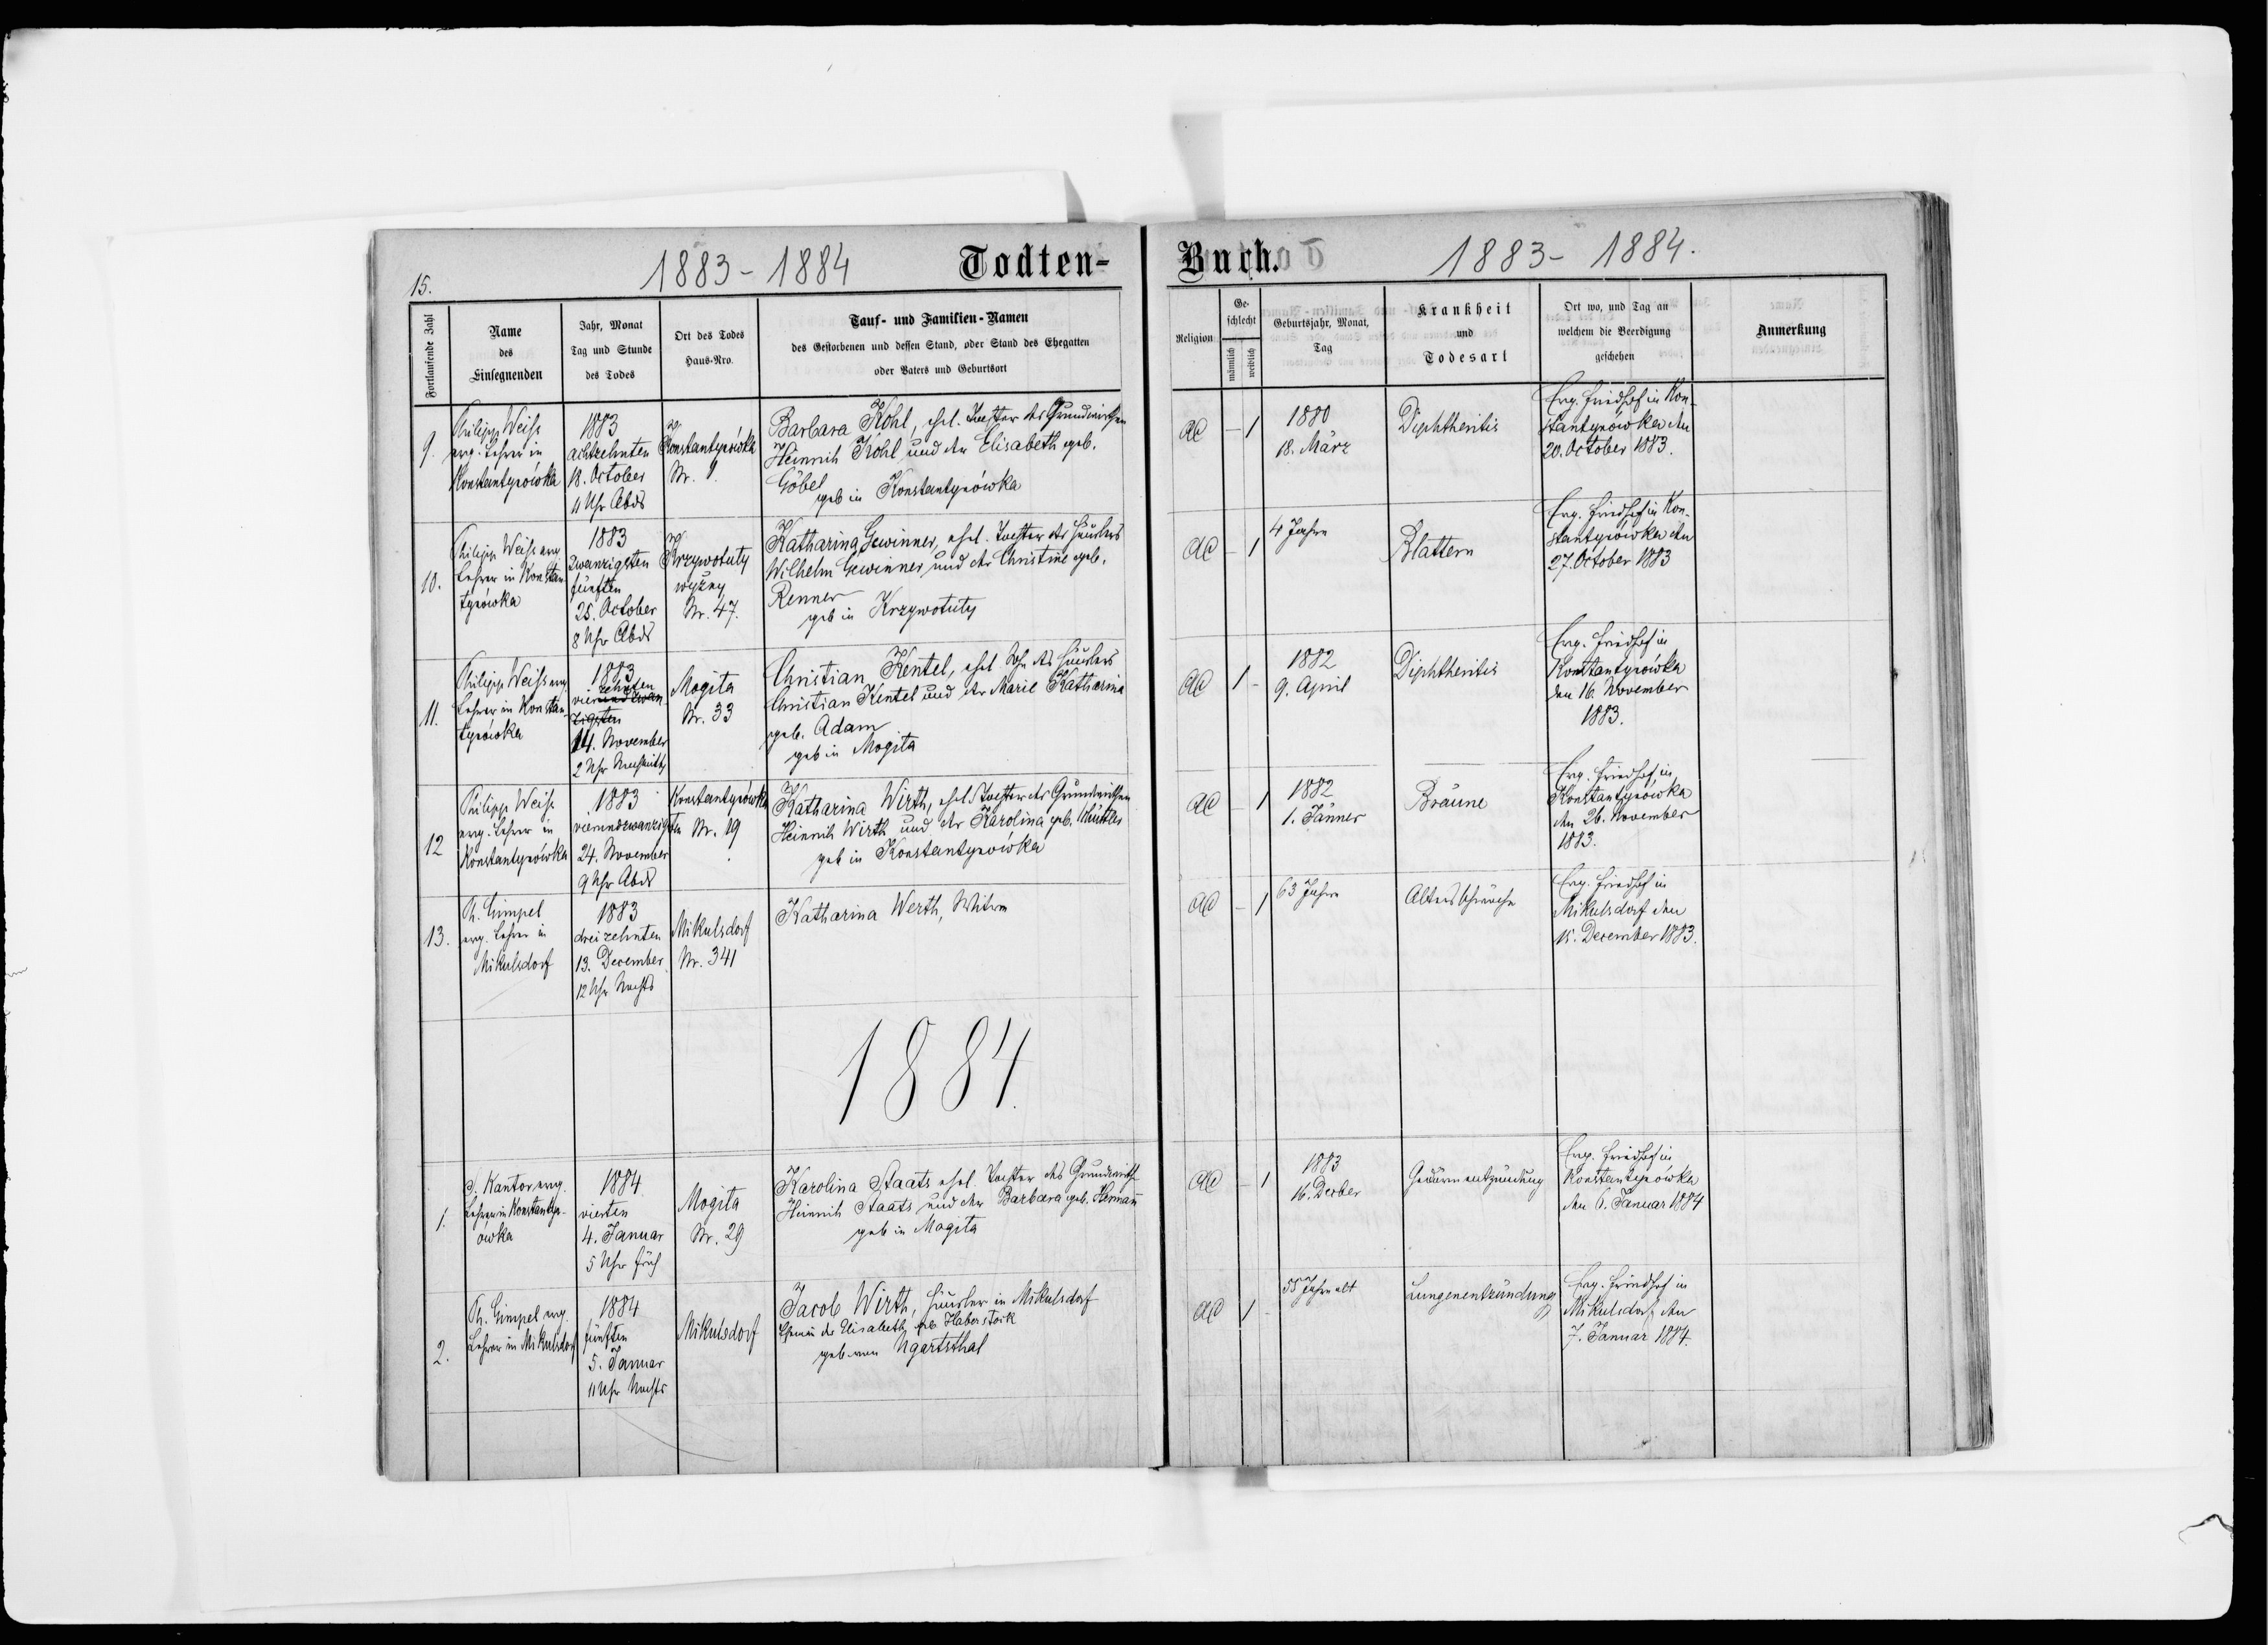 15.
1883 - 1884
Todten-
Buch.
1883 - 1884.
Fortlaufende Zahl
Name
des
Einsegnenden
Jahr, Monat
Tag und Stunde
des Todes
Ort des Todes
Haus-Nro.
Tauf- und Familien-Namen
des Gestorbenen und dessen Stand, oder Stand des Ehegatten
oder Vaters und Geburtsort
Religion
Ge-
schlecht
männlich
weiblich
Geburtsjahr, Monat,
Tag
Krankheit
und
Todesart
Ort wo, und Tag an
welchem die Beerdigung
geschehen
Anmerkung
9.
Philipp Weiss
evg. Lehrer in
Konstantynówka
1883
achtzehnten
18. October
11 Uhr Abds
Konstantynówka
Nr. 9.
Barbara Kohl, ehel. Tochter des Grundwirthen
Heinrich Kohl und der Elisabeth geb.
Göbel
geb in Konstantynówka
AC
- 1
1880
18. März
Diphtheritis
Evg. Friedhof in Kon-
stantynówka den
20. October 1883.
10.
Philipp Weiss evg
Lehrer in Konstan-
tynówka
1883
zwanzigsten
fünften
25. October
8 Uhr Abds
Krzywotuty
wyżny
Nr. 47.
Katharina Gewinner, ehel. Tochter des Häuslers
Wilhelm Gewinner und der Christine geb.
Renner
geb in Krzywotuty
AC
- 1
4 Jahre
Blattern
Evg. Friedhof in Kon-
stantynówka den
27. October 1883
11.
Philipp Weiss evg.
Lehrer in Konstan-
tynówka
1883
zehnten
vierundzwan-
zigsten
14. November
2 Uhr Nachmittg
Mogiła
Nr. 33
Christian Kentel, ehel. Sohn des Häuslers
Christian Kentel und der Marie Katharina
geb. Adam
geb in Mogiła
AC
1 -
1882
9. April
Diphtheritis
Evg. Friedhof in
Konstantynówka
den 16. November
1883.
12
Philipp Weiss
evg. Lehrer in
Konstantynówka
1883
vierundzwanzigsten
24. November
9 Uhr Abds
Konstantynówka
Nr. 19
Katharina Wirth, ehel. Tochter des Grundwirthen
Heinrich Wirth und der Karolina geb.
geb in Konstantynówka
AC
- 1
1882
1. Jänner
Bräune
Evg. Friedhof in
Konstantynówka
den 26. November
1883.
13.
Ph. Gimpel
evg. Lehrer in
Mikulsdorf
1883
dreizehnten
13. December
12 Uhr Nachts
Mikulsdorf
Nr. 341
Katharina Werth, Witwe
AC
- 1
63 Jahre
Altersschwäche
Evg. Friedhof in
Mikulsdorf den
15. December 1883.
1884.
1.
Kantor evg.
Lehrer in Konstantyn-
ówka
1884
vierten
4. Januar
5 Uhr früh
Mogiła
Nr. 29
Karolina Staats ehel. Tochter des Grundwirth
Heinrich Staats und der Barbara geb. Hermann
geb in Mogiła
AC
- 1
1883
16. Decber
Gedärmentzündung
Evg. Friedhof in
Konstantynówka
den 6. Januar 1884
2.
Ph. Gimpel evg.
Lehrer in Mikulsdorf
1884
fünften
5. Januar
11 Uhr Nachts
Mikulsdorf
Jacob Wirth, Häusler in Mikulsdorf
der Elisabeth geb Haberstock
geb. von Ugartsthal
AC
1 -
55 Jahre alt
Lungenentzündung
Evg. Friedhof in
Mikulsdorf den
7. Januar 1884.